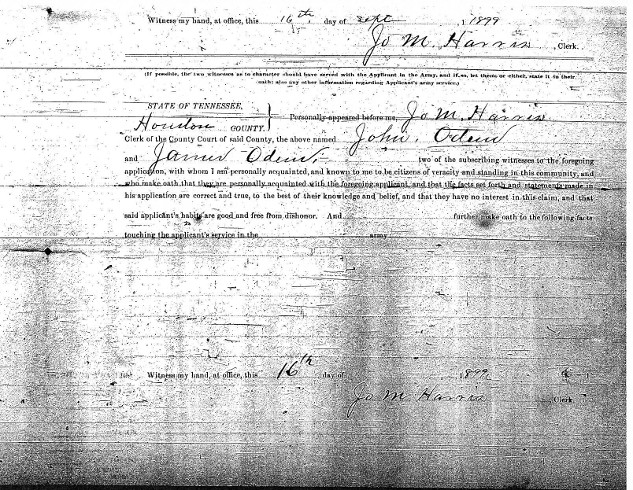 Witness my hand, at office, this 16th day of Sept , 1899
Jo M. Harris , Clerk.
(If possible, the two witnesses as to character should have served with the Applicant in the Army, and if so, let them or either, state it in their
oath; also any other information regarding Applicant's army service.)
STATE OF TENNESSEE,
Houston COUNTY. } Personally appeared before me, Jo M. Harris
Clerk of the County Court of said County, the above named John. Oden
and James Oden, two of the subscribing witnesses to the foregoing
application, with whom I am personally acquainted, and known to me to be citizens of veracity and standing in this community, and
who make oath that they are personally acquainted with the foregoing applicant, and that the facts set forth and statements made in
his application are correct and true, to the best of their knowledge and belief, and that they have no interest in this claim, and that
said applicant's habits are good and free from dishonor. And further make oath to the following facts
touching the applicant's service in the army
Witness my hand, at office, this 16th day of 1899
Jo M Harris Clerk